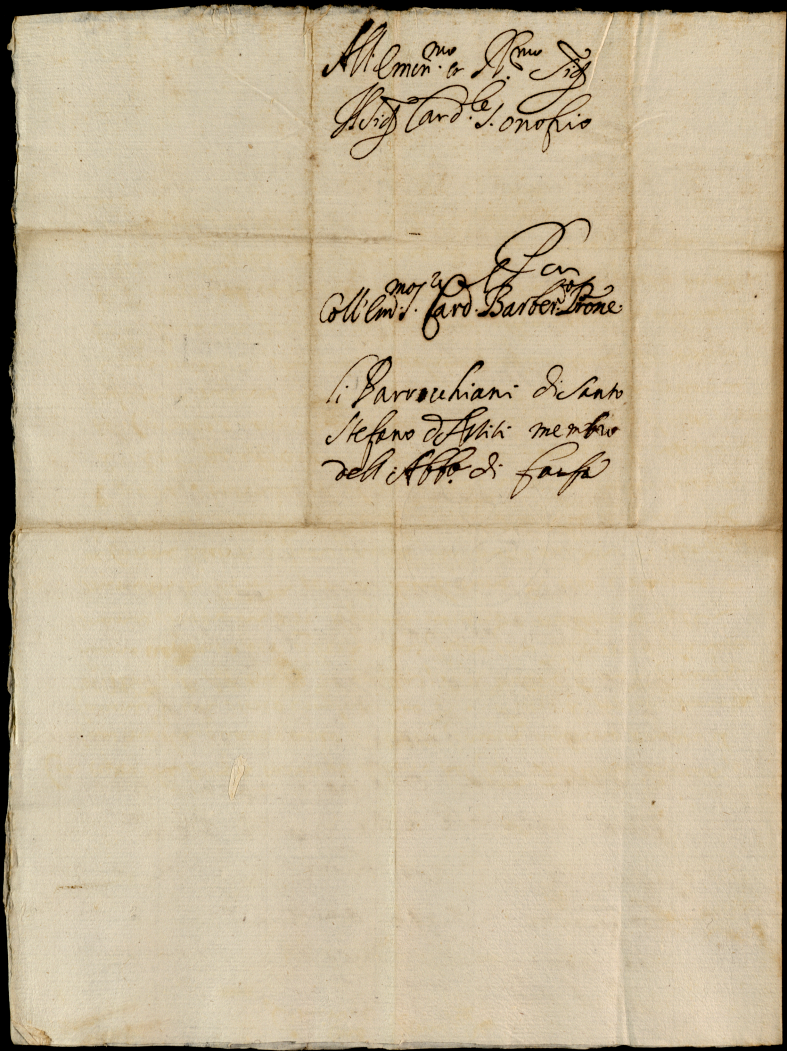 All'Emin.mo et R.mo Sig.
Il Sig. Card.le S. Onofrio
Per
Coll'Em.mo S.r Card. Barber.o Prone.
li Parrochiani di Santo
Stefano d'Assisi membro
dell'Abb.a di Farfa